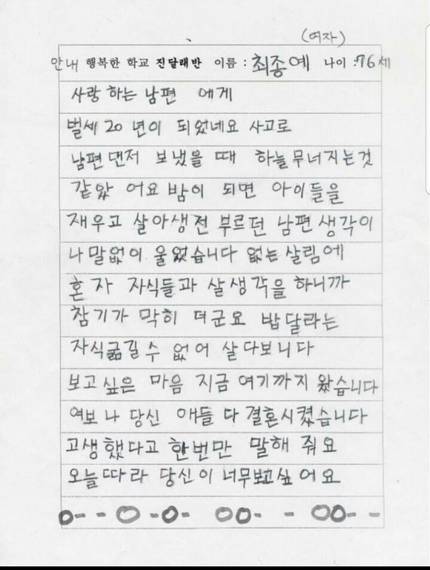 (여자)
안내 행복한 학교 진달래반 이름 : 최종예 나이 : 76 세
사랑 하는 남편 에게
벌세 20 년이 되었네요 사고로
남편 먼저 보냈을 때 하늘 무너지는것
같았 어요 밤이 되면 아이들을
재우고 살아생전 부르던 남편 생각이
나 말없이 울었습니다 없는 살림에
혼 자 자식들과 살생각을 하니까
참기가 막히 더군요 밥달라는
자식굶길수 없어 살다보니다
보고싶은 마음 지금 여기까지 왔습니다
여보 나 당신 애들 다 결혼시켰습니다
고생했다고 한번만 말해 줘요
오늘따라 당신이 너무보고싶어요